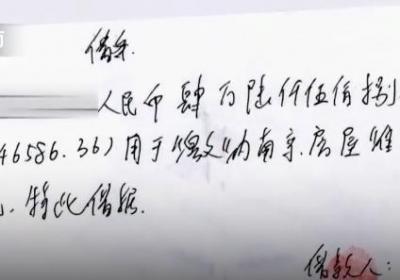 借条
人民币肆万陆仟伍佰捌
46586.36)用于"缴交"内南京.房屋"维
特此借据.
借款人: